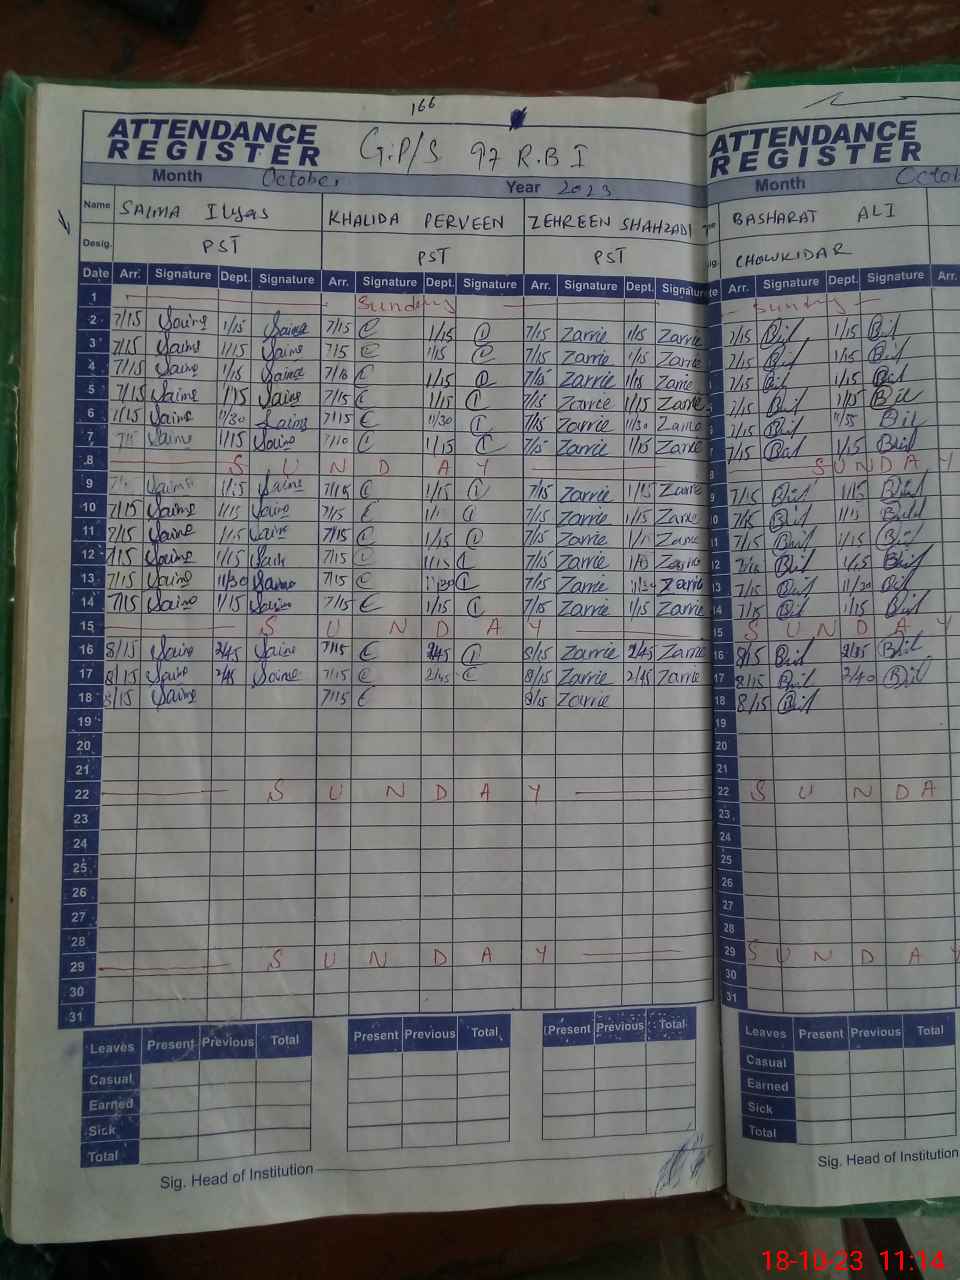 166
ATTENDANCE
REGISTER
G.P/S 97 R.B I
Month October Year 2023
Name SAIMA Ilyas KHALIDA PERVEEN ZEHREEN SHAHZADI
Desig. PST PST PST
Date Arr. Signature Dept. Signature Arr. Signature Dept. Signature Arr. Signature Dept. Signature
1 Sunday
2 7/15 Saima 1/15 Saima 7/15 1/15 7/15 Zarrie 1/15 Zarrie
3 7/15 Saima 1/15 Saima 7/15 1/15 7/15 Zarrie 1/15 Zarrie
4 7/15 Saima 1/15 Saima 1/15 7/15 Zarrie 1/15 Zarrie
5 7/15 Saima 1/15 Saima 7/15 1/15 7/15 Zarrie 1/15 Zarrie
6 Saima 11/30 Saima 7/15 11/30 7/15 Zarrie 11/30 Zarrie
7 Saima 1/15 Saima 7/10 1/15 7/15 Zarrie 1/15 Zarrie
8 SUNDAY
9 Saima 1/15 Saima 7/15 1/15 7/15 Zarrie 1/15 Zarrie
10 7/15 Saima 1/15 Saima 7/15 7/15 Zarrie 1/15 Zarrie
11 7/15 Saima 1/15 Saima 7/15 1/15 7/15 Zarrie Zarrie
12 Saima 1/15 Saima 7/15 7/15 Zarrie Zarrie
13 7/15 Saima 11/30 Saima 7/15 11/30 7/15 Zarrie 11/30 Zarrie
14 7/15 Saima 1/15 Saima 7/15 1/15 7/15 Zarrie 1/15 Zarrie
15 SUNDAY
16 8/15 Saima 2/45 Saima 7/15 2/45 8/15 Zarrie 2/45 Zarrie
17 8/15 Saima 2/45 Saima 7/15 2/45 8/15 Zarrie 2/45 Zarrie
18 8/15 Saima 7/15 8/15 Zarrie
19
20
21
22 SUNDAY
23
24
25
26
27
28
29 SUNDAY
30
31
Leaves Present Previous Total Present Previous Total Present Previous Total
Casual
Earned
Sick
Total
Sig. Head of Institution
ATTENDANCE
REGISTER
Month
BASHARAT ALI
CHOWKIDAR
Arr. Signature Dept. Signature Arr.
Sunday
7/15 1/15
7/15 1/15
1/15 1/15
1/15
7/15 11/55
7/15 1/15
8 SUNDAY
9 7/15 1/15
10 7/15 1/15
11 7/15 1/15
12
13 7/15 11/30
14 7/15 1/15
15 SUNDAY
16 8/15
17 8/15 2/40
18 8/15
19
20
21
22 SUNDA
23
24
25
26
27
28
29 SUNDAY
30
31
Leaves Present Previous Total
Casual
Earned
Sick
Total
Sig. Head of Institution
18-10-23 11:14